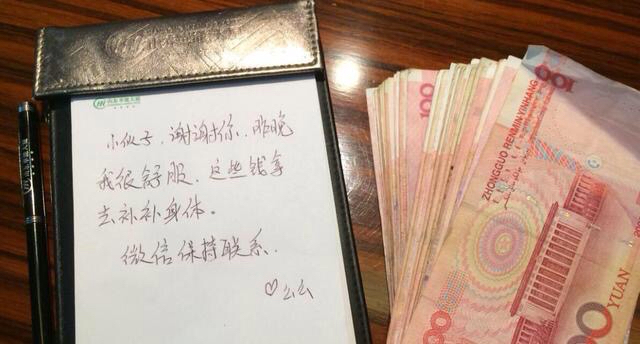 小伙子，谢谢你，昨晚
我很舒服，这些钱拿
去补补身体。
微信保持联系。
♡么么
100
ZHONGGUO RENMIN YINHANG
100
YUAN